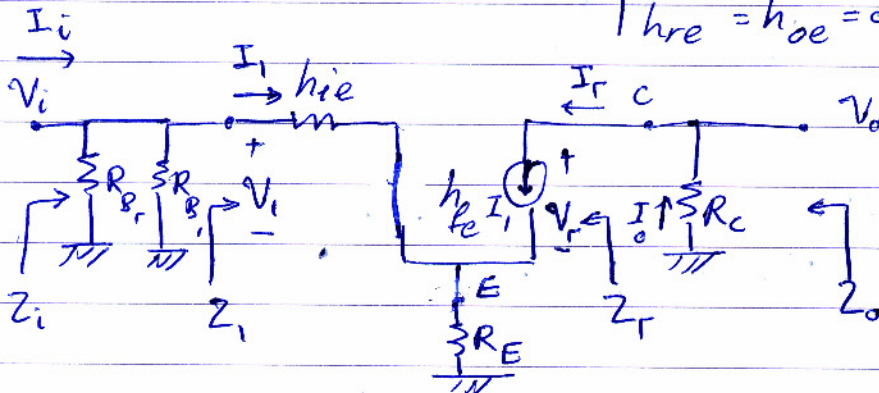 hre = hoe = 0
Ii
I1 hie
Ir C
Vi
Vo
+
+
RBr RB1 V1
hfe I1 Vr Io RC
-
-
Zi Z1 E Zr Zo
RE